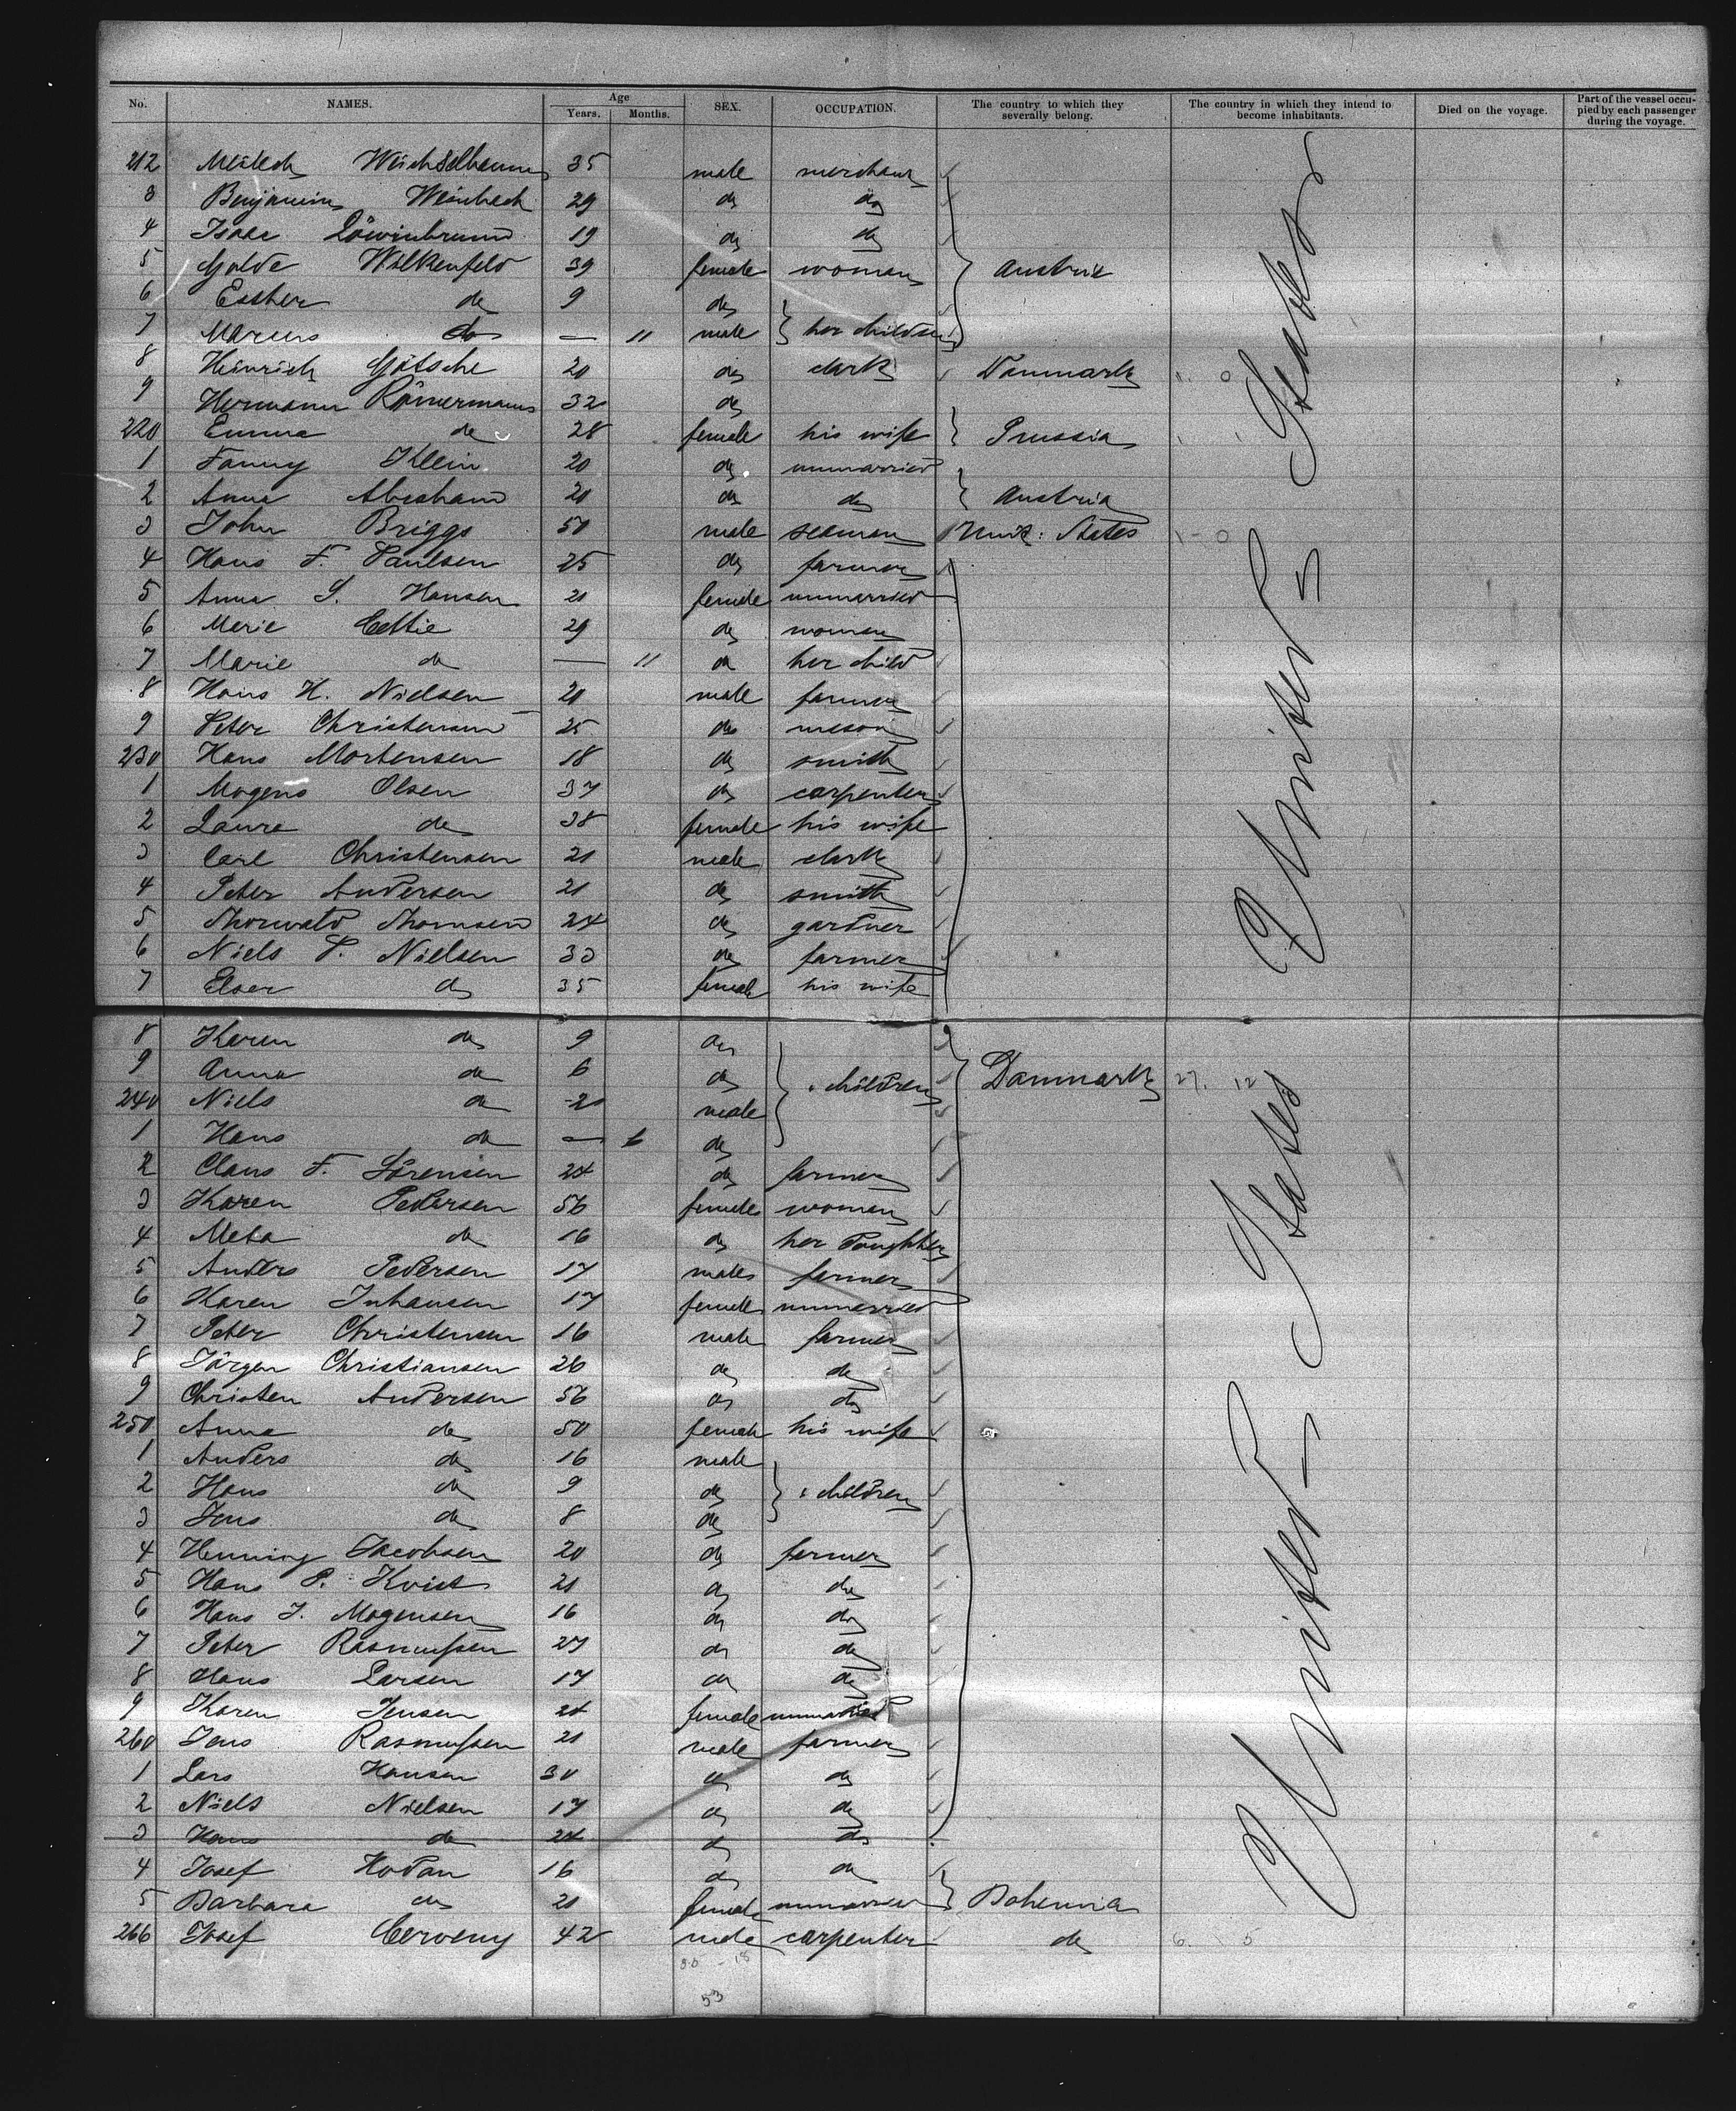 No. NAMES. Age Years. Months. SEX. OCCUPATION. The country to which they severally belong. The country in which they intend to become inhabitants. Died on the voyage. Part of the vessel occupied by each passenger during the voyage.
212 35 male merchant
3 Benjamin Weinbach 29 do do
4 Isaac 19 do do
5 Golde Wilkenfeld 39 female woman Austria
6 Esther do 9 do
7 Marcus do — 11 male her children
8 Heinrich Götsche 20 do clerk Danmark
9 Hermann 32 do
220 Emma do 28 female his wife Prussia
1 Fanny Klein 20 do unmarried
2 Anna Abraham 20 do do Austria
3 John Briggs 50 male seaman Unit: States
4 Hans F. Paulsen 25 do farmer
5 Anna S. Hansen 21 female unmarried
6 Marie 29 do woman
7 Marie do — 11 do her child
8 Hans H. Nielsen 20 male farmer
9 Peter Christensen 25 do mason
230 Hans Mortensen 18 do smith
1 Mogens Olsen 37 do carpenter
2 Laura do 38 female his wife
3 Carl Christensen 21 male clerk
4 Peter Andersen 21 do smith
5 Thorwald Thomsen 24 do gardner
6 Niels P. Nielsen 33 do farmer
7 Elser do 35 female his wife
8 Karen do 9 do
9 Anna do 6 do children Danmark 27. 12
240 Niels do 2 male
1 Hans do — 6 do
2 Claus F. Sörensen 24 do farmer
3 Karen Pedersen 56 female woman
4 Meta do 16 do her doughter
5 Anders Pedersen 17 male farmer
6 Karen Johansen 17 female unmarried
7 Peter Christensen 16 male farmer
8 Jörgen Christiansen 26 do do
9 Christen Andersen 56 do do
250 Anna do 50 female his wife
1 Anders do 16 male
2 Hans do 9 do children
3 Jens do 8 do
4 Henning Jacobsen 20 do farmer
5 Hans P. Kvist 21 do do
6 Hans J. Mogensen 16 do do
7 Peter Rasmussen 27 do do
8 Hans Larsen 17 do do
9 Karen Jensen 24 female unmarried
260 Jens Rasmussen 21 male farmer
1 Lars Hansen 30 do do
2 Niels Nielsen 17 do do
3 Hans do 24 do do
4 Josef Hodan 16 do do
5 Barbara do 21 female unmarried Bohemia
266 Josef Cerveny 42 male carpenter do 6. 5
53
United States
United States